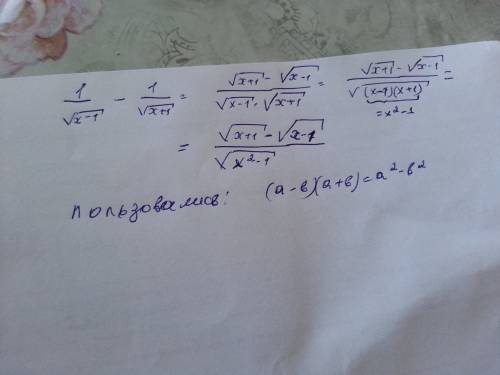 1/√(x-1) - 1/√(x+1) = (√(x+1) - √(x-1))/(√(x-1)·√(x+1)) = (√(x+1) - √(x-1))/√((x-1)(x+1)) =
= x²-1
= (√(x+1) - √(x-1))/√(x²-1)
пользовались: (a-в)(a+в)=a²-в²